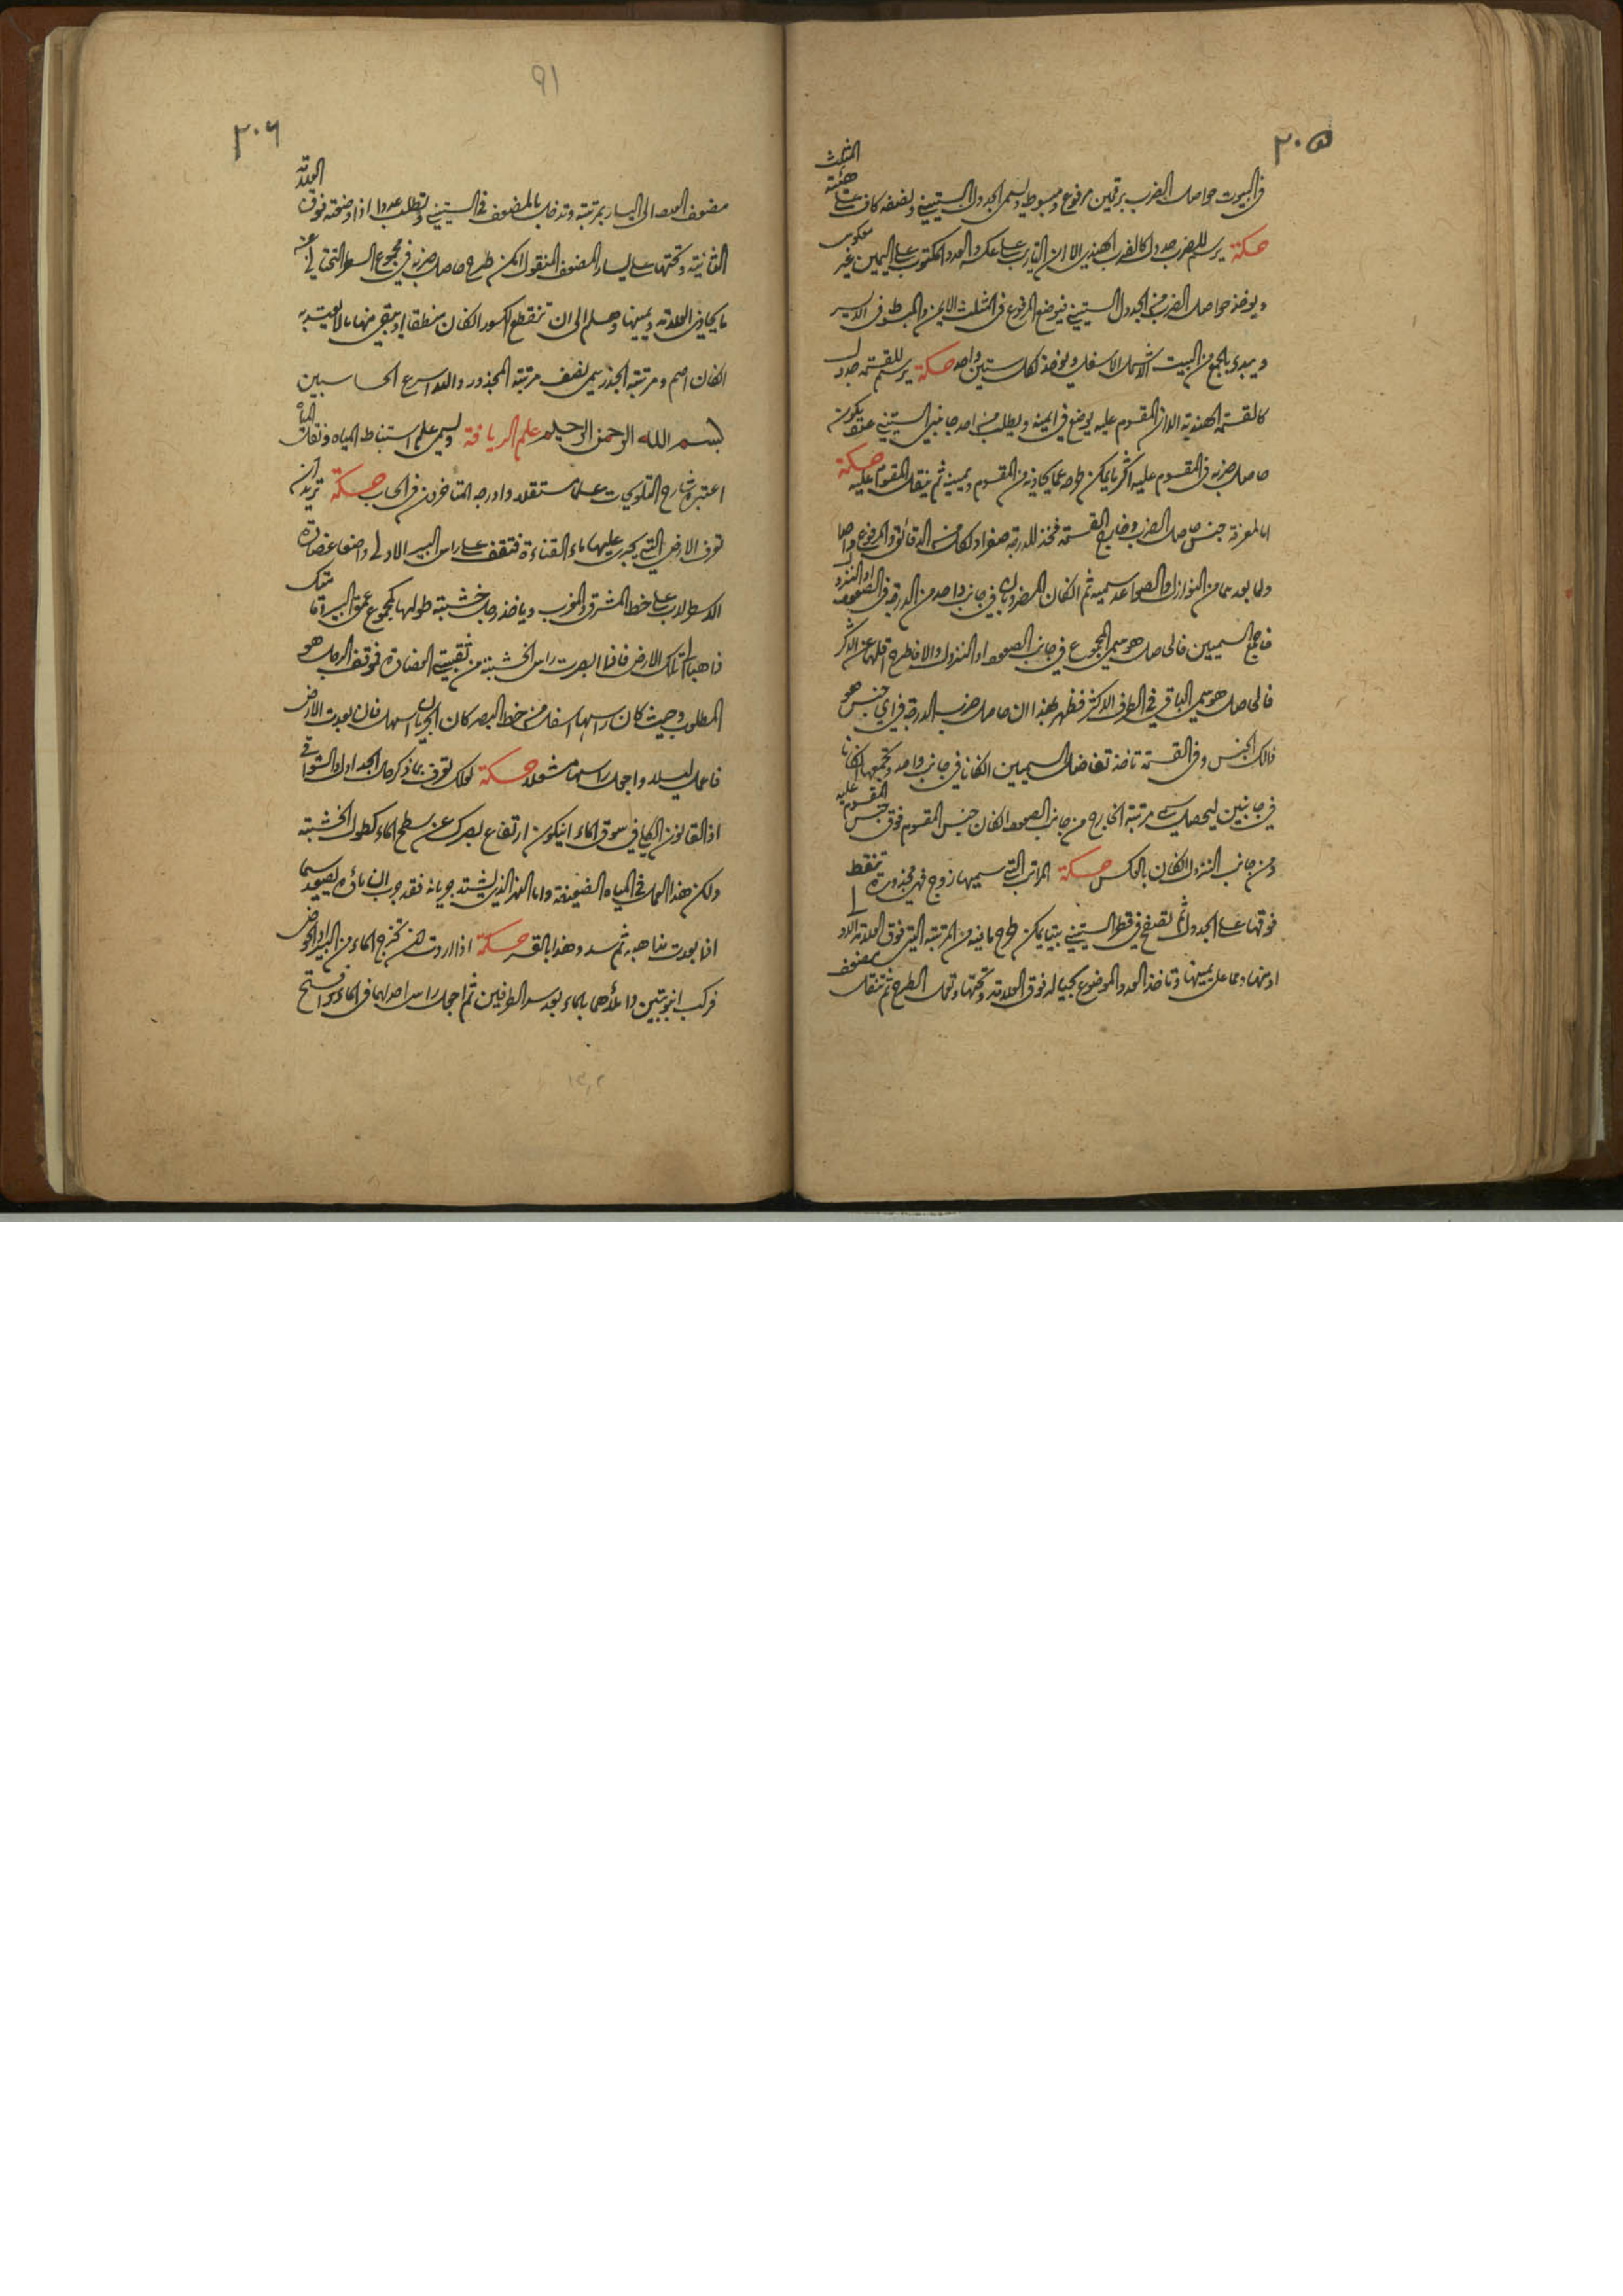 ٢٠٥
فى البيوت حواصل الضرب برقمين مرفوع ومبسوط ويسمى الجدول الستينى ونصفه كاف على هيئة المثلث
حكمة يرسم للضرب جدول كالضرب الهندى الا ان التاريب على عكسه والعدد المكتوب على اليمين غير معكوس
ويوخذ حواصل الضرب من الجدول الستينى فيوضع المرفوع فى المثلث الايمن والمبسوط فى الايسر
ويبدى بالجمع من البيت الاسفل ويوخذ لكل ستين واحد حكمة يرسم للقسمة جدول
كالقسمة الهندية الا ان المقسوم عليه يوضع فى ايمنه ويطلب من احد جانبى الستينى عدد يكون
حاصل ضربه فى المقسوم عليه اكثر ما يمكن طرحه مما يحاذيه من المقسوم ويمينه ثم ينقل المقسوم عليه حكمة
اما لمعرفة جنس حاصل الضرب وخارج القسمة فخذ للدرجة صفرا ولكل من الدقائق والمرفوع واحدا
ولما بعدهما من النوازل والصواعد سميه ثم ان كان المضروبان فى جانب واحد من الدرجة فى الصعود او النزول
فاجمع السميين فالحاصل هو سمى المجموع فى جانب الصعود او النزول والا فاطرح اقلهما عن الاكثر
فالحاصل هو سمى الباقى فى الطرف الاكثر فظهر بهذا ان حاصل ضرب الدرجة فى اى جنس هو
ذلك الجنس وفى القسمة تاخذ تفاضل السميين ان كانا فى جانب واحد وتجمعهما ان كانا
فى جانبين ليحصل سمى مرتبة الخارج من جانب الصعود ان كان جنس المقسوم فوق جنس المقسوم عليه
ومن جانب النزول ان كان بالعكس حكمة المراتب التى سميها زوج فهى مجذورة تنقط
فوقها على الجدول ثم تصفح فى قطر الستينى بيتا يمكن طرح ما فيه من المرتبة التى فوق العلامة الاولى
او منها ومما على يمينها وتاخذ العدد الموضوع بحياله فوق العلامة وتحتها وتعمل الطرح ثم تنقل مضعف
٩١
٢٠٦
مضعف العدد الى اليسار بمرتبة وتدخل بالمضعف فى الستينى وتطلب عددا اذا وضعته فوق العلامة
الثانية وتحتها على يسار المضعف المنقول امكن طرح حاصل ضربه فى مجموع السطر التحتانى عن
ما يحاذى العلامة ويمينها وهلم الى ان تنقطع الكسور ان كان منطقا او يبقى منها ما لا يعتد به
ان كان اصم ومرتبة الجذر سمى نصف مرتبة المجذور والله اسرع الحاسبين
بسم الله الرحمن الرحيم علم الريافة ويسمى علم استنباط المياه ونقلها
اعتبره شارح التلويحات علما مستقلا وادرجه المتاخرون فى الحساب حكمة تريد ان
تعرف الارض التى يجرى عليها ماء القناة فتقف على راس البير الاولى واضعا عضادة
الاسطرلاب على خط المشرق والمغرب وياخذ رجل خشبة طولها كمجموع عمق البير وقامتك
ذاهبا تلك الارض فاذا ابصرت راس الخشبة من ثقبتى العضادة فموقف الرجل هو
المطلوب وحيث كان راسها اسفل من خط البصر كان الجريان اسهل فان بعدت الارض
فاعمل ليلا واجعل راسها مشعلا حكمة لعلك تعرف بما ذكر حال الجداول والسواقى
اذ القانون الكلى فى سوق الماء ان يكون ارتفاع بصرك عن سطح الماء كطول الخشبة
ولكن هذا العمل فى المياه الضعيفة واما النهر الذى يشتد جريانه فقد جرب ان ماؤه يصعد سيما
اذا بعدت مذاهبه ثم سد وهذا بالقسر حكمة اذا اردت ان تخرج الماء من البير او الحوض
فركب انبوبتين واملأهما بالماء بعد سد الطرفين ثم اجعل راس احدهما فى الماء وافتح